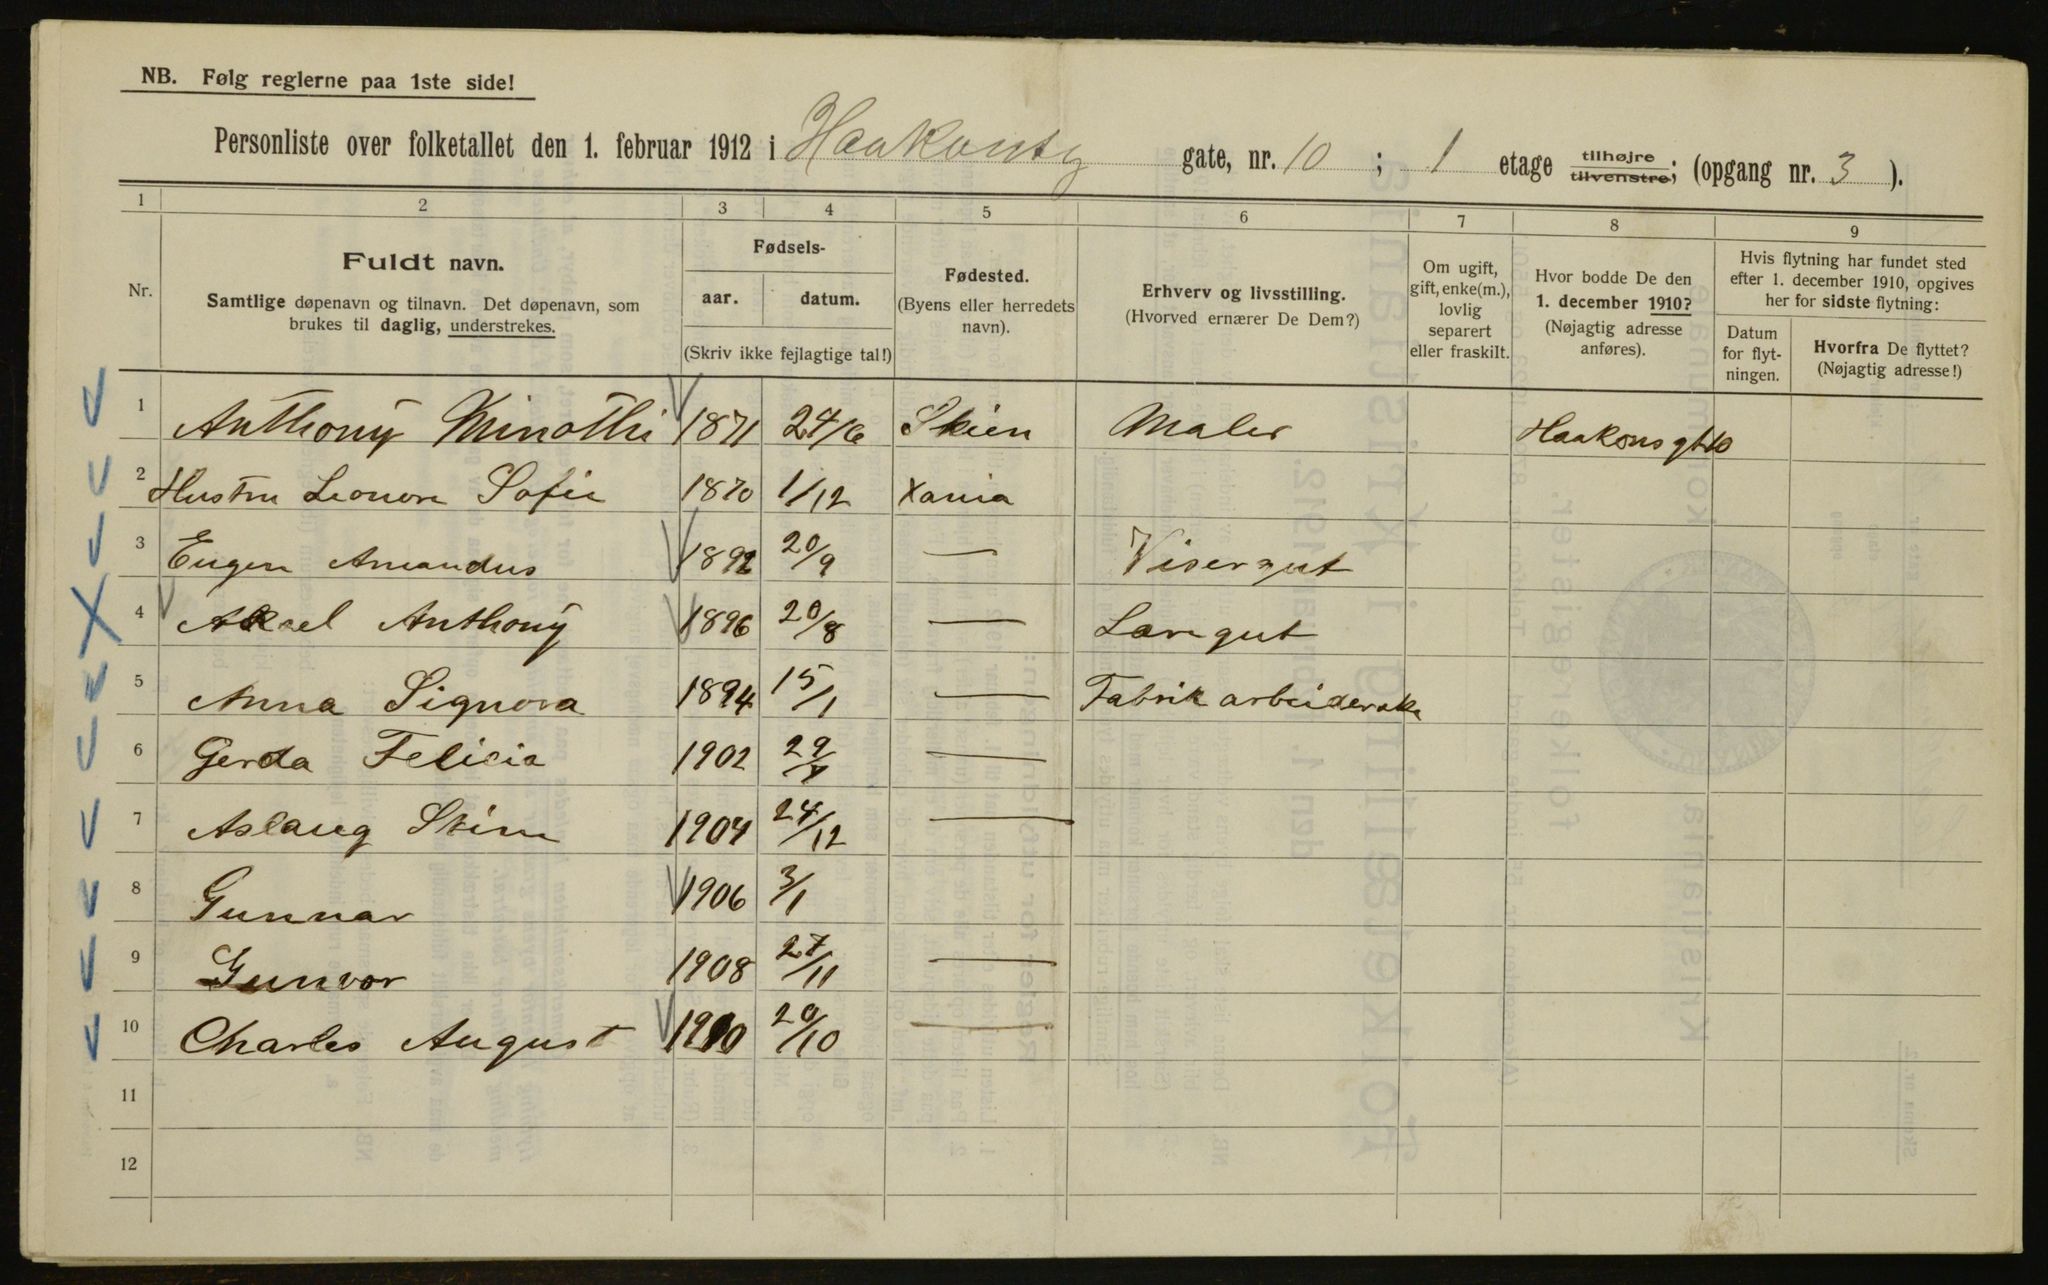 NB. Følg reglerne paa 1ste side!
Personliste over folketallet den 1. februar 1912 i Haakonsg gate, nr. 10 ; 1 etage tilhøjre tilvenstre; (opgang nr. 3 ).
1 2 3 4 5 6 7 8 9
Nr.
Fuldt navn.
Samtlige døpenavn og tilnavn. Det døpenavn, som
brukes til daglig, understrekes.
Fødsels-
aar. datum.
(Skriv ikke fejlagtige tal!)
Fødested.
(Byens eller herredets
navn).
Erhverv og livsstilling.
(Hvorved ernærer De Dem?)
Om ugift,
gift, enke(m.),
lovlig
separert
eller fraskilt.
Hvor bodde De den
1. december 1910?
(Nøjagtig adresse
anføres).
Hvis flytning har fundet sted
efter 1. december 1910, opgives
her for sidste flytning:
Datum
for flyt-
ningen.
Hvorfra De flyttet?
(Nøjagtig adresse!)
1 Anthony Minothi 1871 24/6 Skien Maler Haakonsgt 10
2 Hustru Leonore Sofie 1870 1/12 Xania
3 Eugen Amandus 1892 20/9 — Visergut
4 Aksel Anthony 1896 20/8 — Læregut
5 Anna Signora 1894 15/1 — Fabrik arbeiderske
6 Gerda Felicia 1902 —
7 Aslaug 1904 24/12 —
8 Gunnar 1906 3/1
9 Gunvor 1908 27/11 —
10 Charles August 1910 20/10 —
11
12